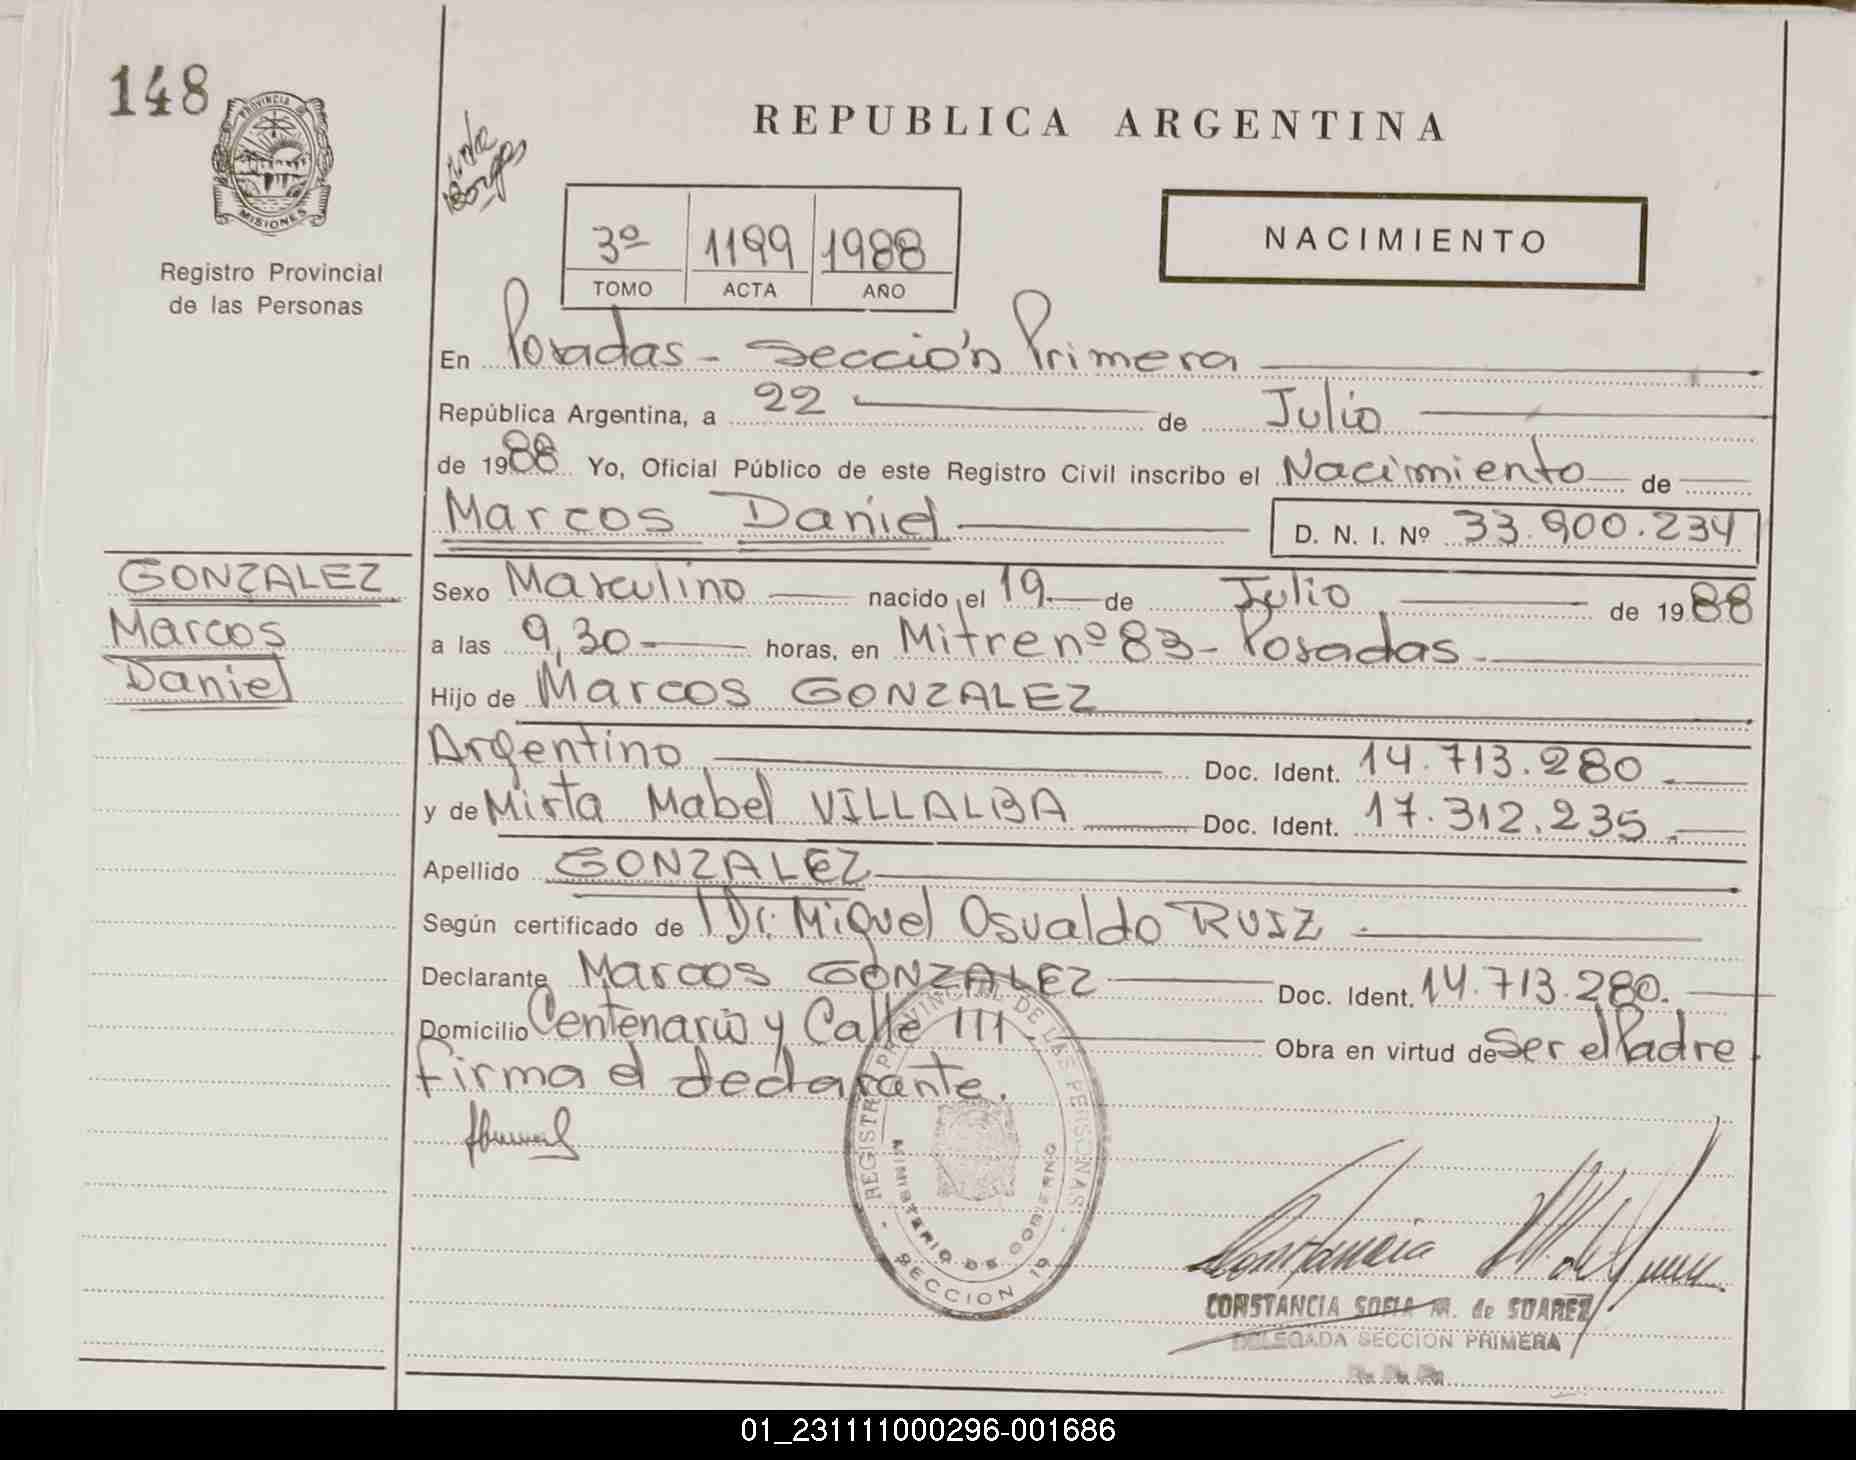 148
PROVINCIA DE
MISIONES
Registro Provincial
de las Personas
REPUBLICA ARGENTINA
3º 1199 1988
TOMO ACTA AÑO
NACIMIENTO
En Posadas - Sección Primera
República Argentina, a 22 de Julio
de 1988 Yo, Oficial Público de este Registro Civil inscribo el Nacimiento de
Marcos Daniel D. N. I. Nº 33.900.234
GONZALEZ
Marcos
Daniel
Sexo Masculino nacido el 19 de Julio de 1988
a las 9,30 horas, en Mitre nº 83 - Posadas
Hijo de Marcos GONZALEZ
Argentino Doc. Ident. 14.713.280
y de Mirta Mabel VILLALBA Doc. Ident. 17.312.235
Apellido GONZALEZ
Según certificado de Dr. Miguel Osvaldo RUIZ
Declarante Marcos GONZALEZ Doc. Ident. 14.713.280.
Domicilio Centenario y Calle 111 Obra en virtud de Ser el Padre.
firma el declarante.
REGISTRO PROVINCIAL DE LAS PERSONAS
MINISTERIO DE GOBIERNO
SECCION 1º
CONSTANCIA SOFIA M. de SUAREZ
DELEGADA SECCION PRIMERA
01_231111000296-001686